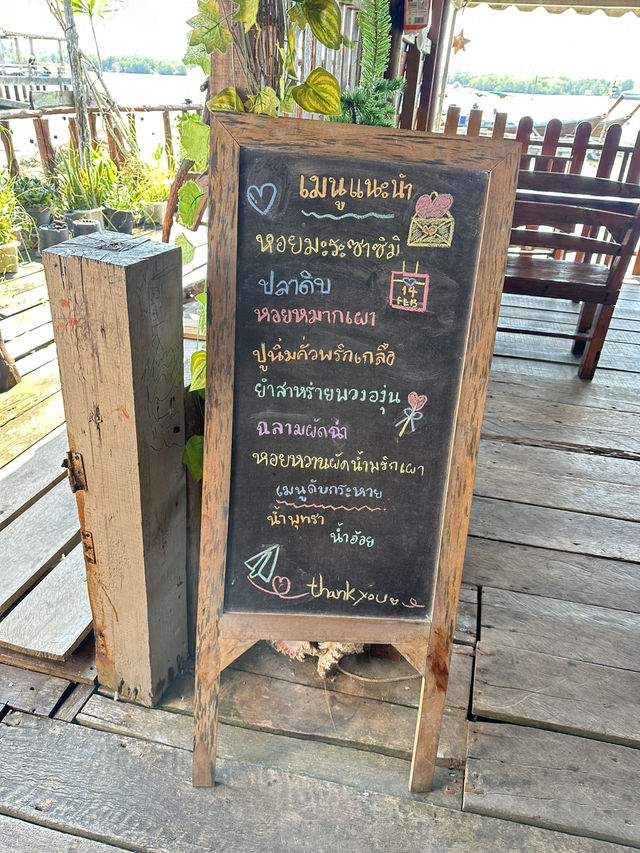 เมนูแนะนำ
หอยมะระซาซิมิ
ปลาดิบ
14
FEB
หอยหมากเผา
ปูนิ่มคั่วพริกเกลือ
ยำสาหร่ายพวงองุ่น
ฉลามผัดฉ่า
หอยหวานผัดน้ำพริกเผา
เมนูดับกระหาย
น้ำพุทรา
น้ำอ้อย
thank you